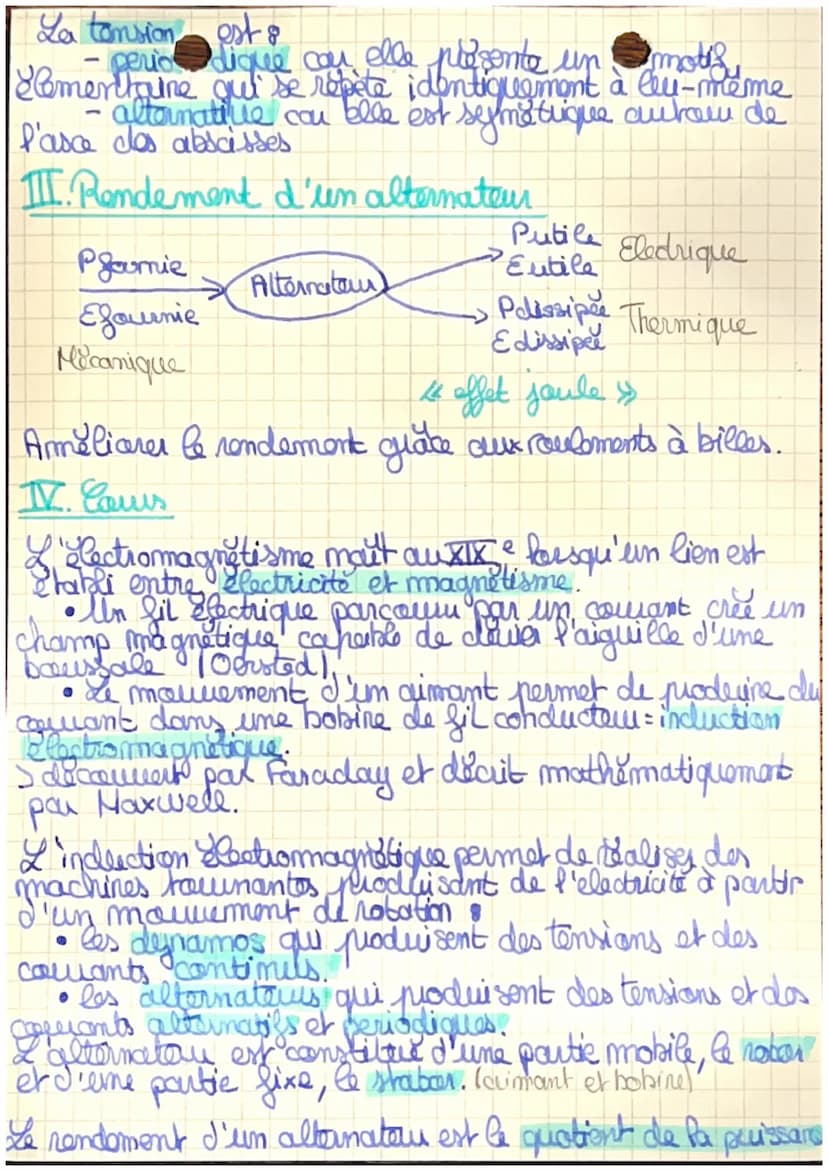 La tension est :
- periodique car elle présente un motif
élementaire qui se répète identiquement à lui-même
- alternative car elle est symétrique autour de
l'axe des abscisses
III. Rendement d'un alternateur
Pfournie
Efournie
Mécanique
Alternateur
Putile
Eutile
Electrique
Pdissipée
Edissipée
Thermique
« effet joule »
Améliorer le rendement grâce aux roulements à billes.
IV. Cours
L'électromagnétisme naît au XIXe lorsqu'un lien est
établi entre électricité et magnétisme.
• Un fil électrique parcouru par un courant créé un
champ magnétique capable de dévier l'aiguille d'une
boussole (Oersted).
• Le mouvement d'un aimant permet de produire du
courant dans une bobine de fil conducteur = induction
électromagnétique.
> découvert par Faraday et décrit mathématiquement
par Maxwell.
L'induction électromagnétique permet de réaliser des
machines tournantes produisant de l'electricité à partir
d'un mouvement de rotation :
• les dynamos qui produisent des tensions et des
courants continus.
• les alternateurs qui produisent des tensions et des
courants alternatifs et periodiques.
L'alternateur est constitué d'une partie mobile, le rotor
et d'une partie fixe, le stator. (aimant et bobine)
Le rendement d'un alternateur est le quotient de la puissanc